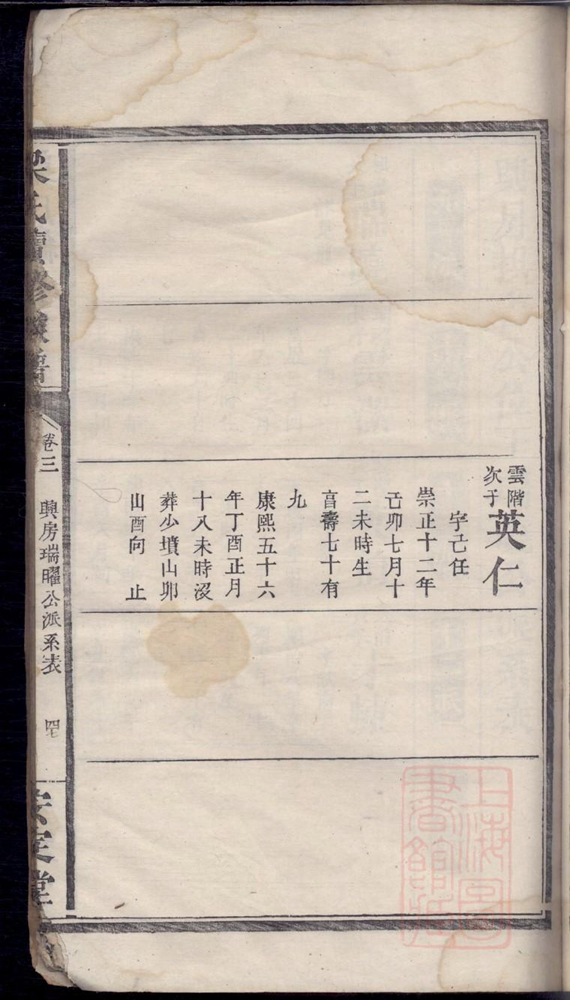 雲階
次子
英仁
字己任
崇正十二年
己卯七月十
二未時生
享壽七十有
九
康熙五十六
年丁酉正月
十八未時沒
葬少墳山卯
山酉向 止
梁氏續修譜
卷三
興房瑞曜公派系表
安定堂
上海圖書館藏